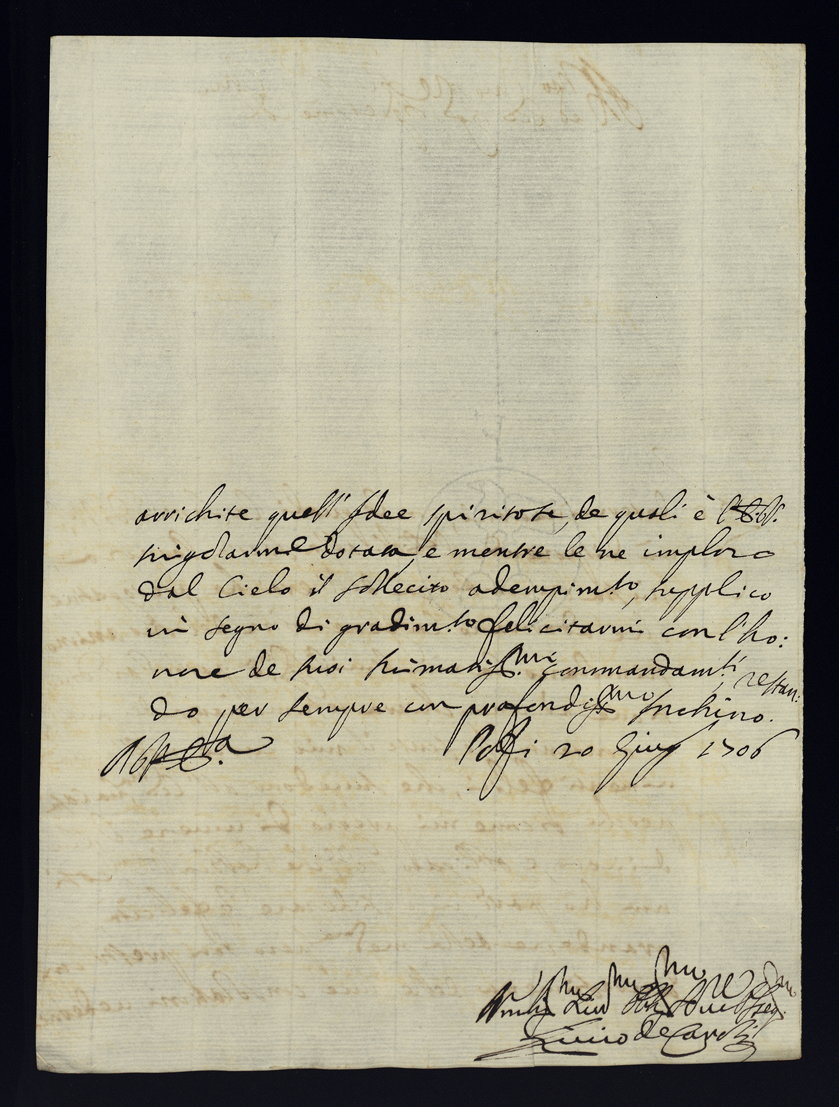 arrichite quell' Idee spiritose, de quali è
singolarm.te dotata, e mentre le ne imploro
dal Cielo il sollecito adempim.to, supplico
in segno di gradim.to felicitarmi con l'ho:
nore de suoi stimatiss.mi commandam.ti, restan:
do per sempre con profondiss.mo Inchino.
Pofi 20 Giug 1706
Livio de Carolis